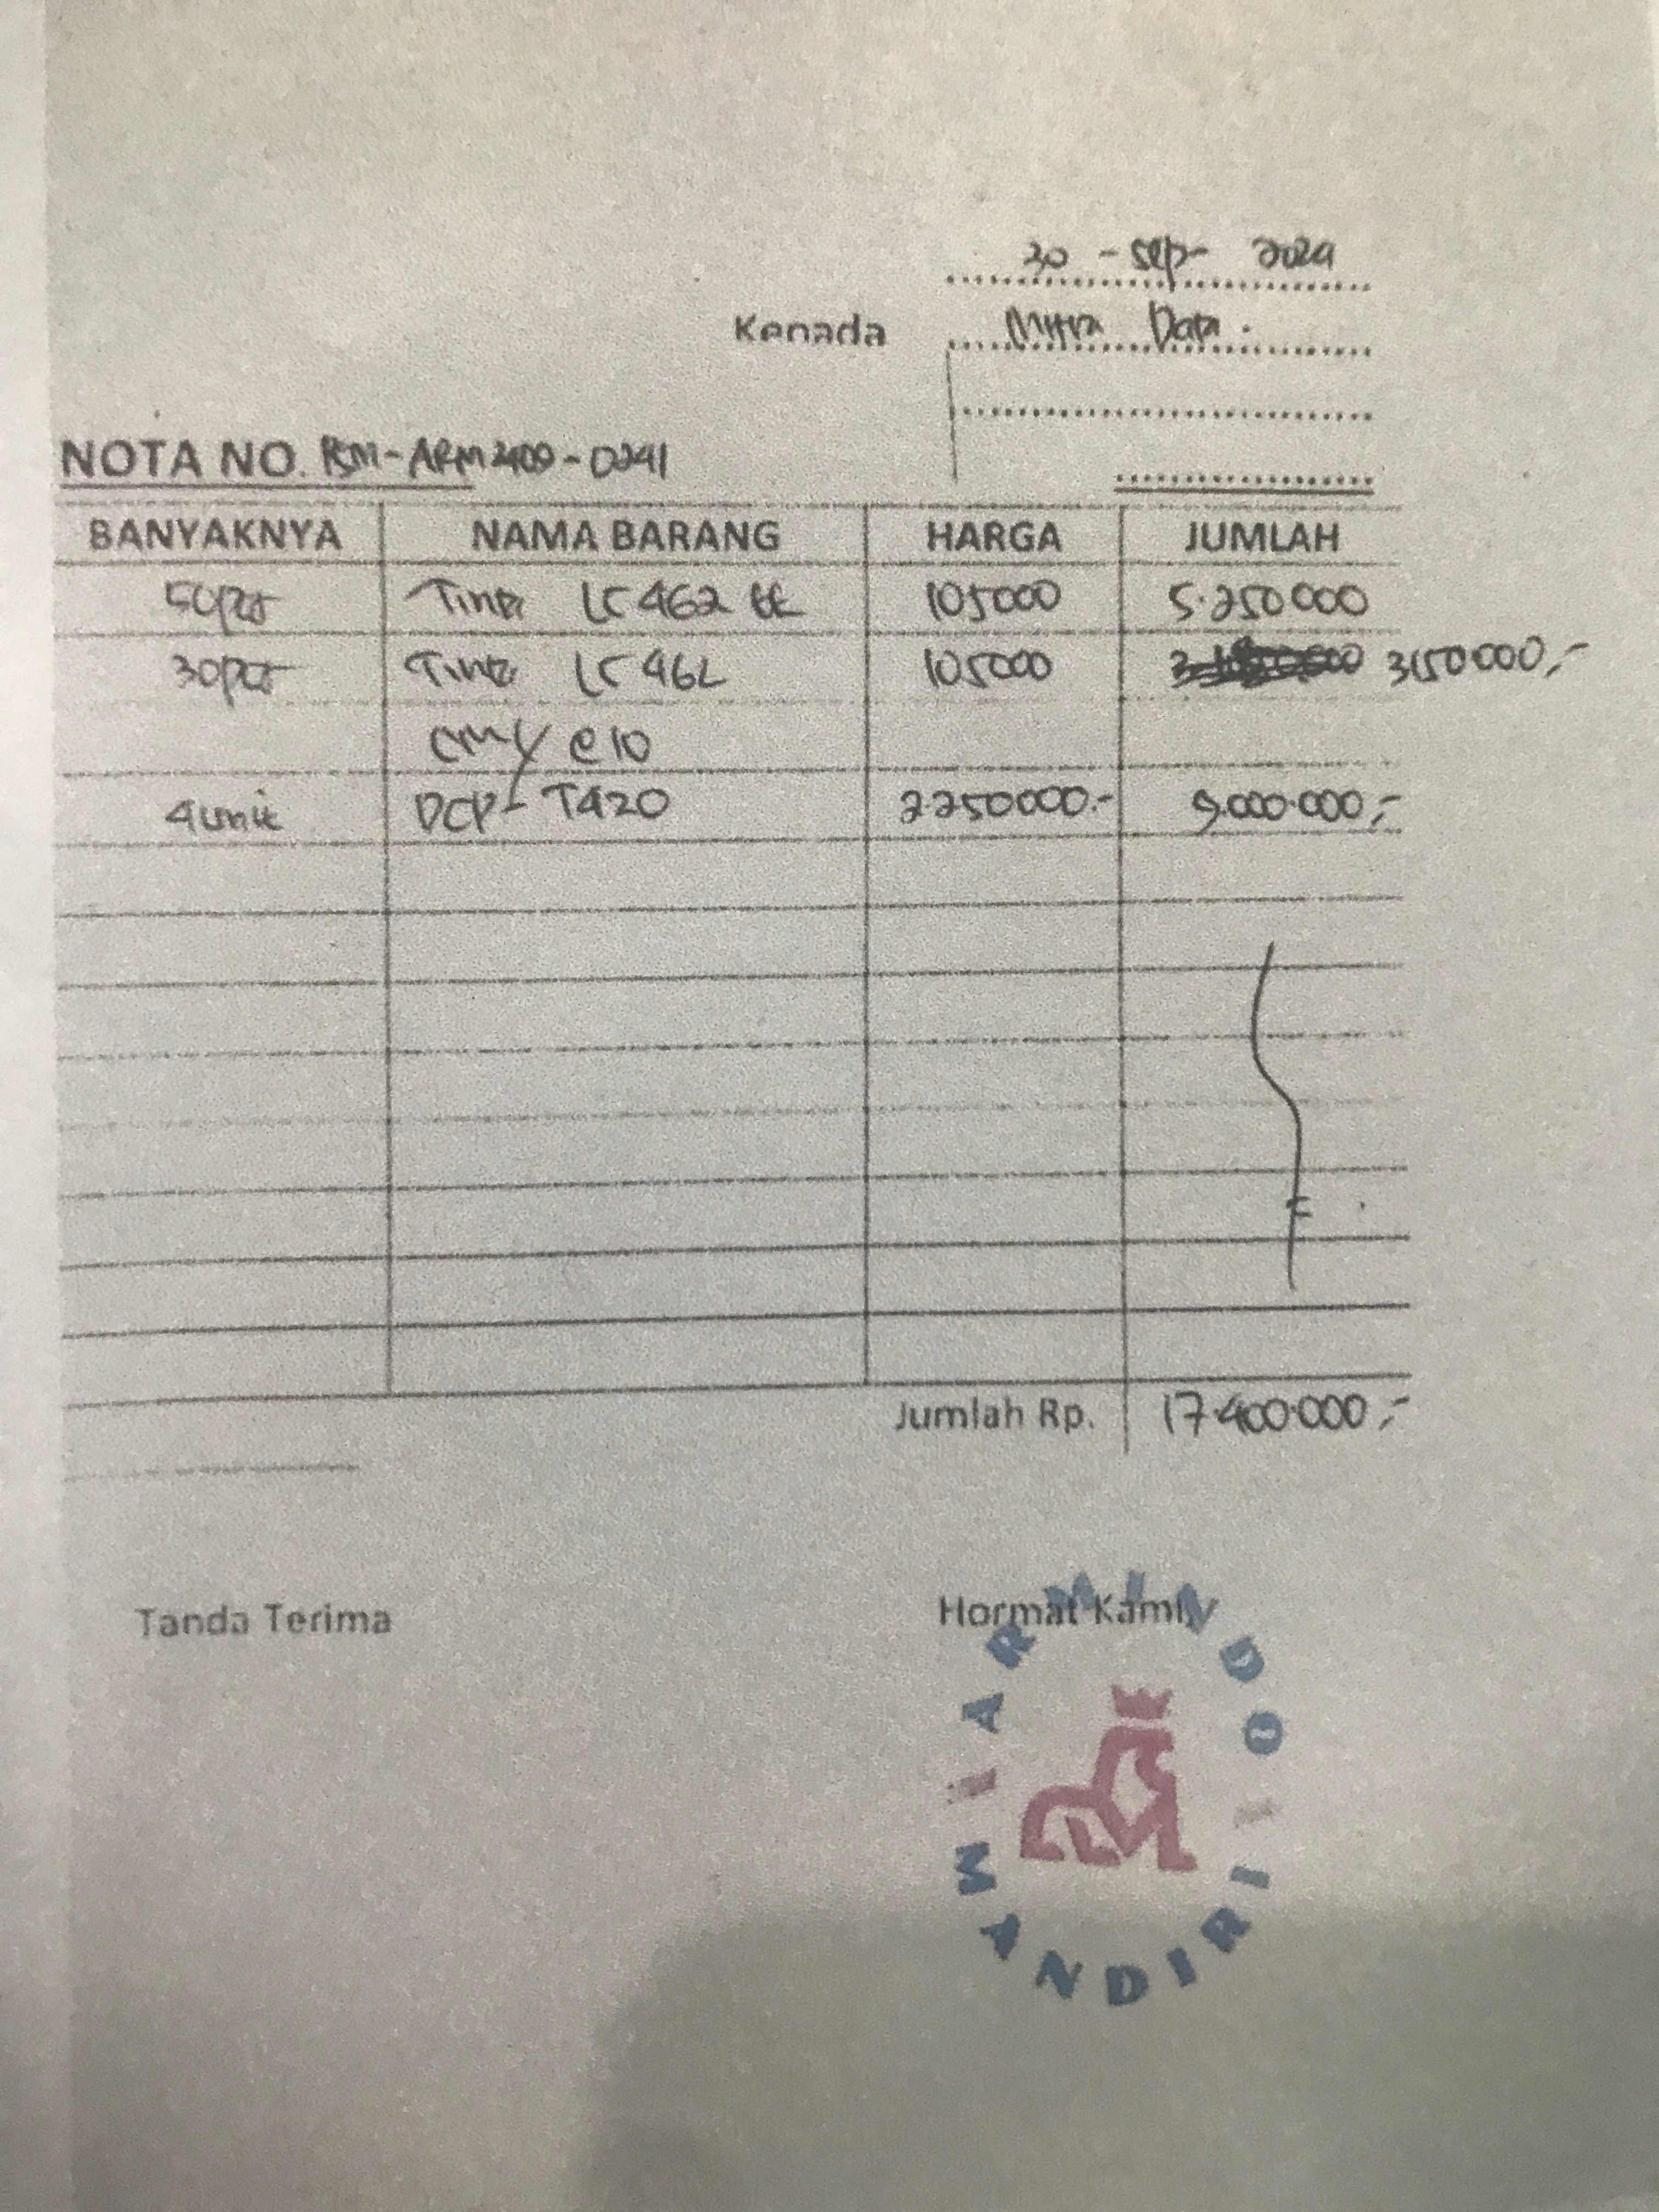 30 - Sep - 2024
Kepada Mitra Data.
NOTA NO. BM-ARM2409-0241
BANYAKNYA NAMA BARANG HARGA JUMLAH
50pcs Tinta LC 462 BK 105000 5.250000
30pcs Tinta LC 462 105000 3150000,-
CMY @ 10
4unit DCP-T420 2.250000.- 9.000.000,-
Jumlah Rp. 17.400.000,-
Tanda Terima Hormat Kami,
ARMINDO
MANDIRI